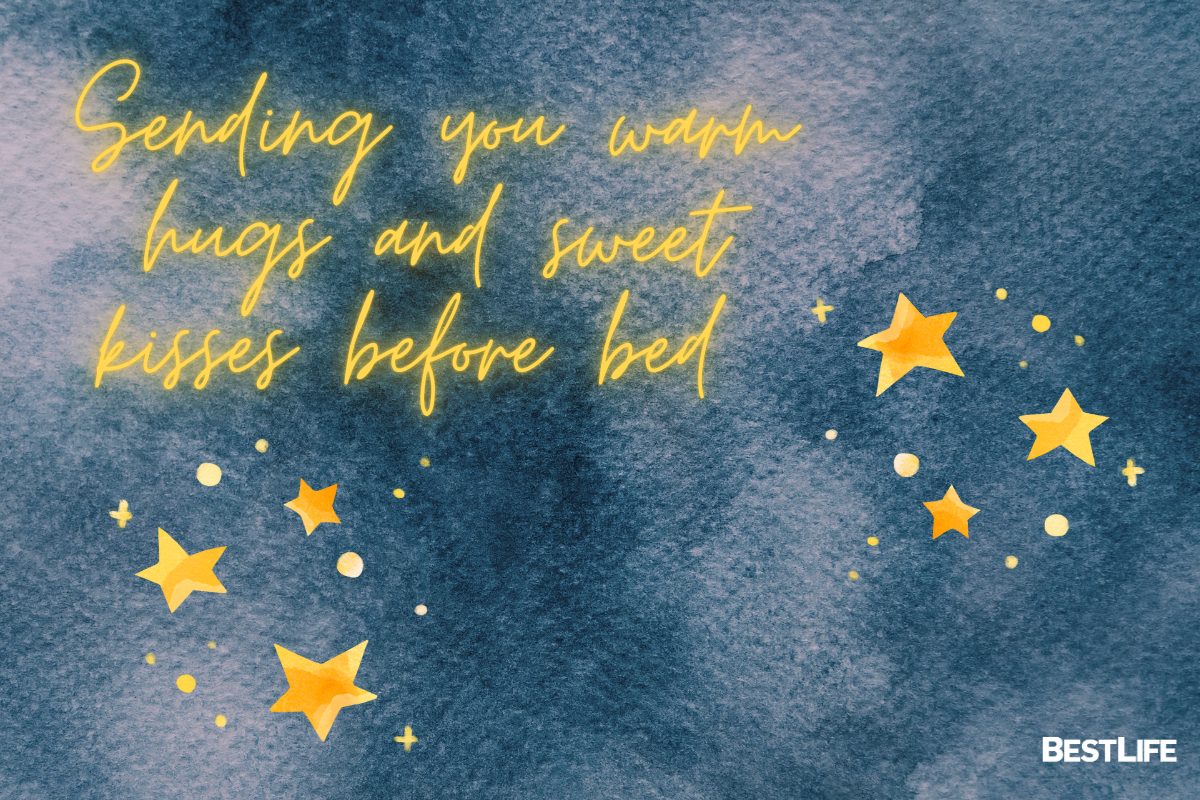 Sending you warm
hugs and sweet
kisses before bed
BESTLIFE